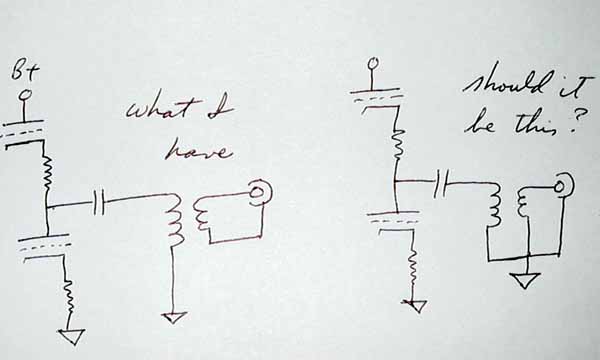 B+
what I
have
should it
be this?